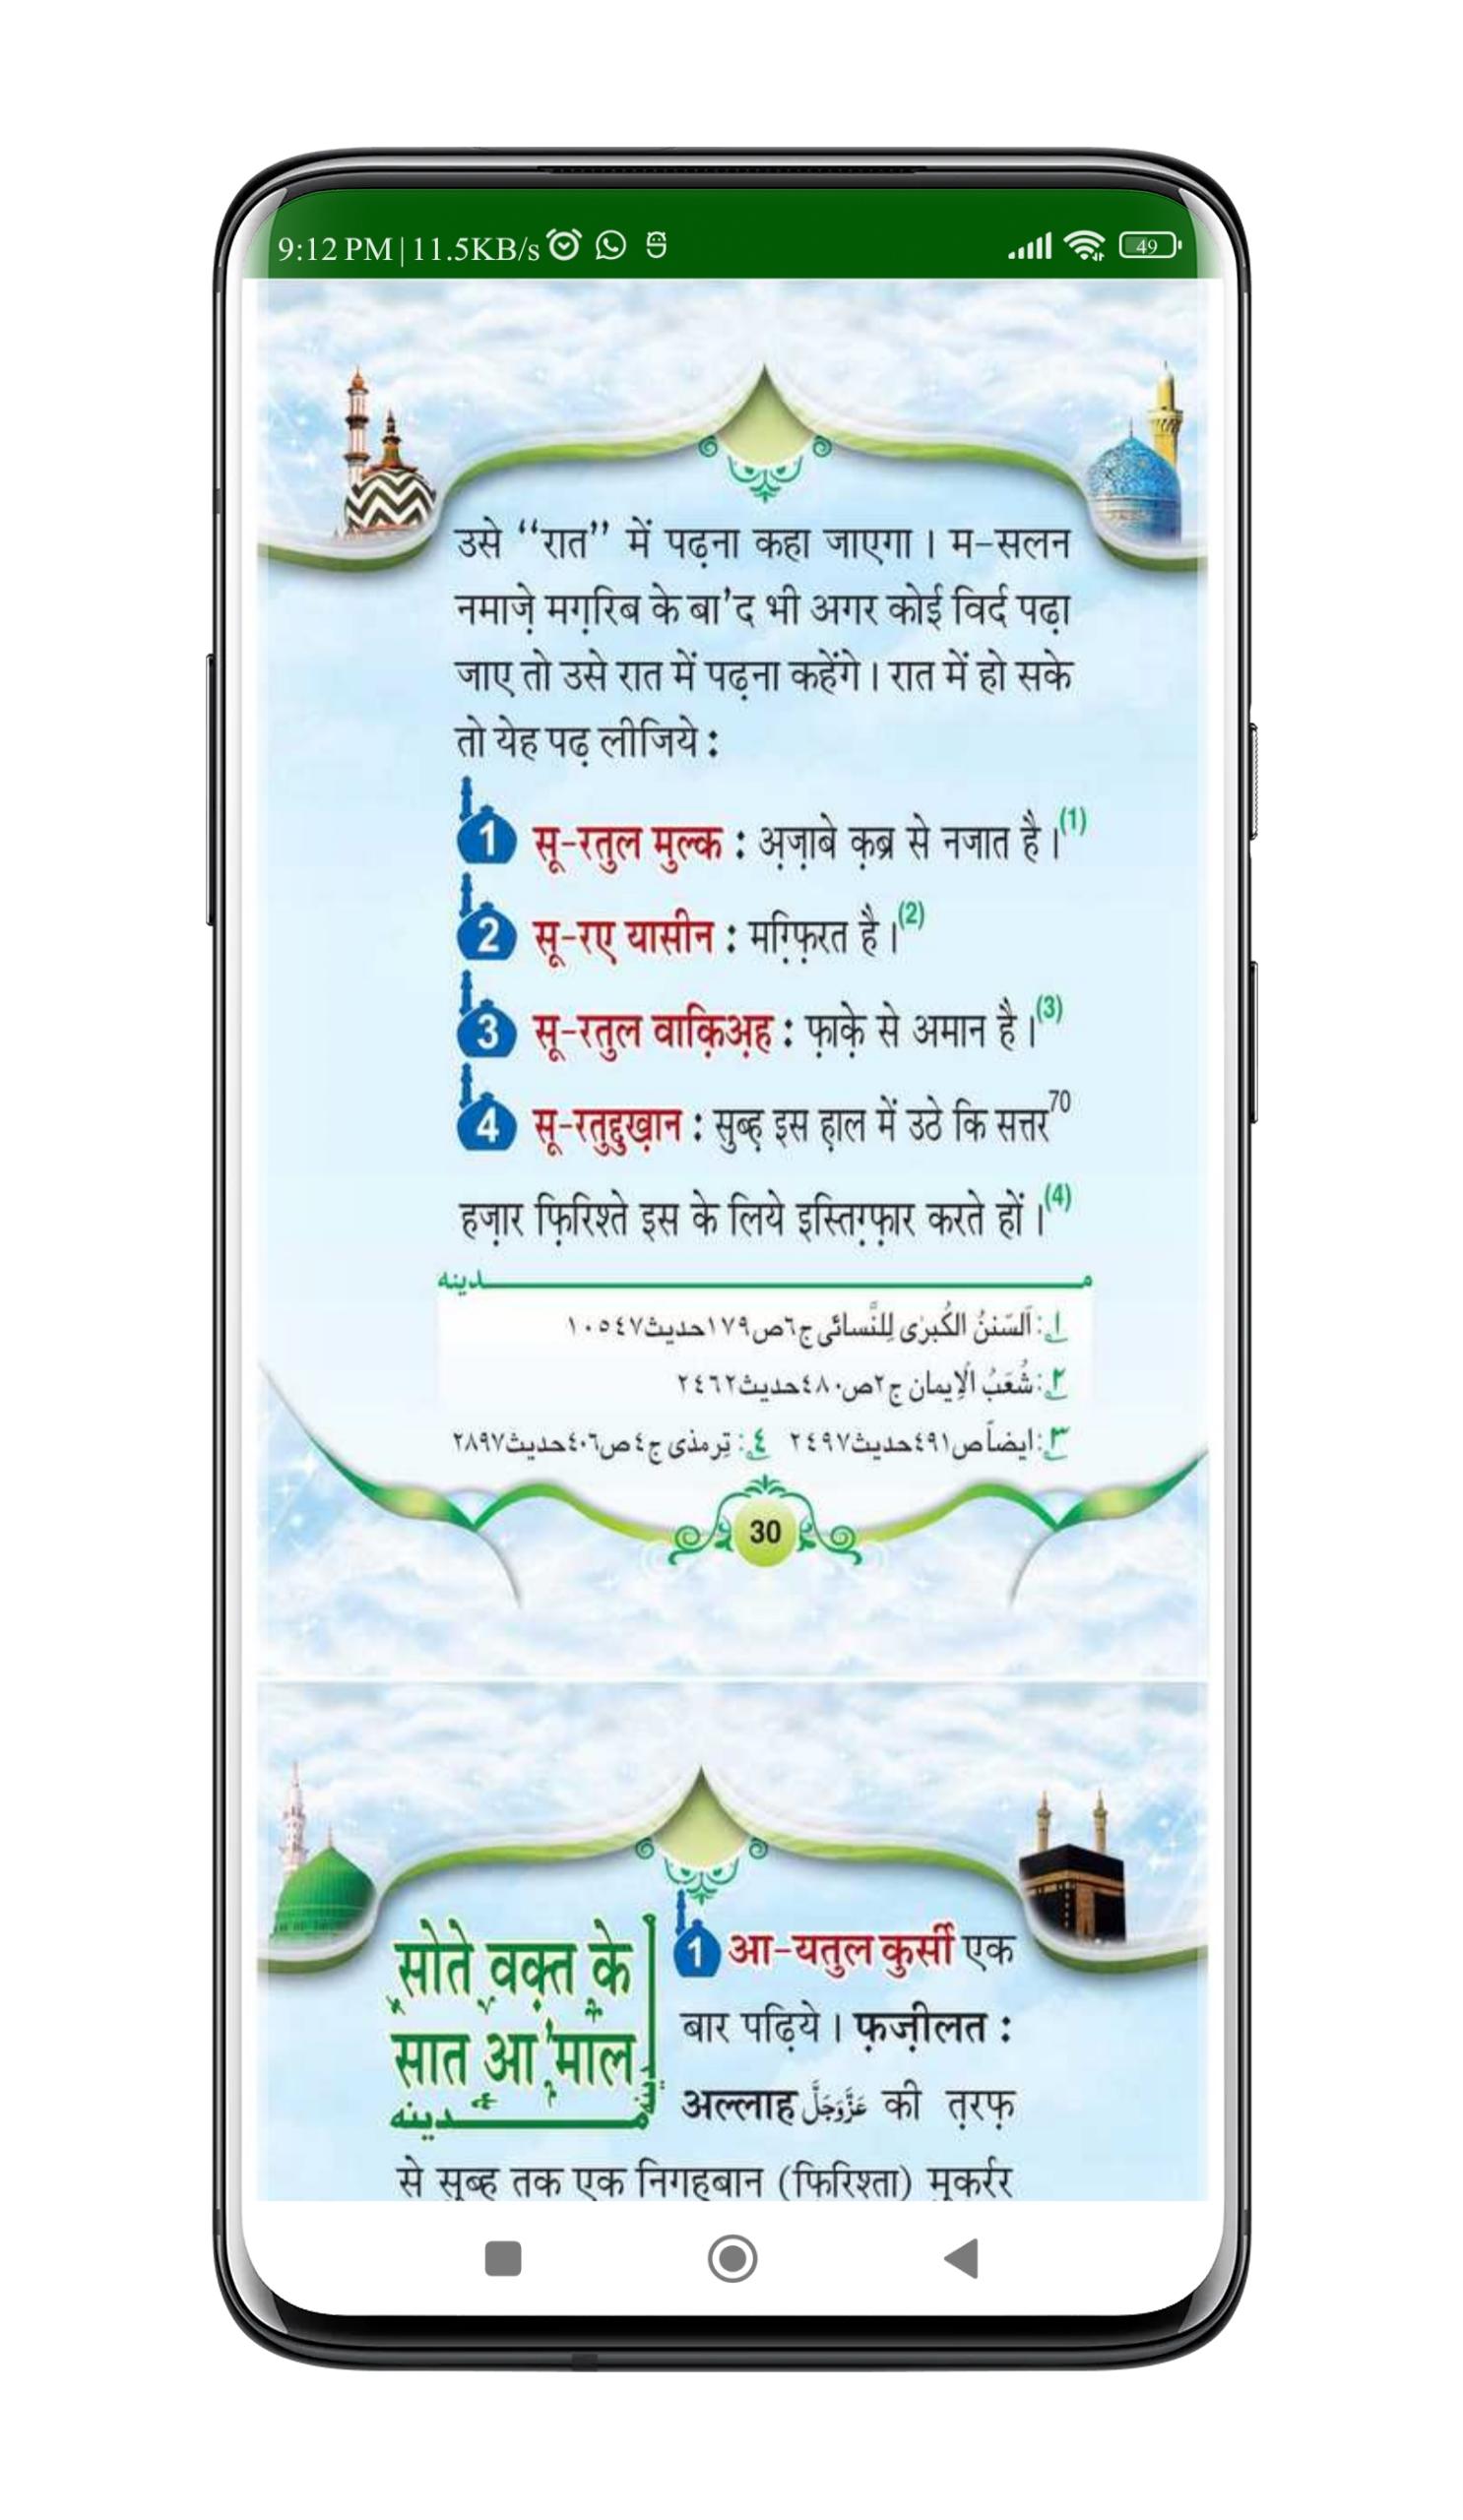 9:12 PM | 11.5KB/s
49
उसे ‘‘रात’’ में पढ़ना कहा जाएगा । म-सलन
नमाज़े मग़रिब के बा’द भी अगर कोई विर्द पढ़ा
जाए तो उसे रात में पढ़ना कहेंगे । रात में हो सके
तो येह पढ़ लीजिये :
1 सू-रतुल मुल्क : अ़ज़ाबे क़ब्र से नजात है ।(1)
2 सू-रए यासीन : मग़्फ़िरत है ।(2)
3 सू-रतुल वाक़िअ़ह : फ़ाक़े से अमान है ।(3)
4 सू-रतुद्दुख़ान : सुब्ह़ इस ह़ाल में उठे कि सत्तर70
हज़ार फ़िरिश्ते इस के लिये इस्तिग़्फ़ार करते हों ।(4)
مدينه
١: اَلسّننُ الكُبرٰى لِلنَّسائى ج٦ص١٧٩حديث١٠٥٤٧
٢: شُعَبُ الْاِيمان ج٢ص٤٨٠حديث٢٤٦٢
٣: ايضاًص٤٩١حديث٢٤٩٧ ٤: تِرمذى ج٤ص٤٠٦حديث٢٨٩٧
30
सोते वक़्त के
सात आ’माल
مدينه
1 आ-यतुल कुर्सी एक
बार पढ़िये । फ़ज़ीलत :
अल्लाह عَزَّوَجَلَّ की त़रफ़
से सुब्ह़ तक एक निगहबान (फ़िरिश्ता) मुक़र्रर